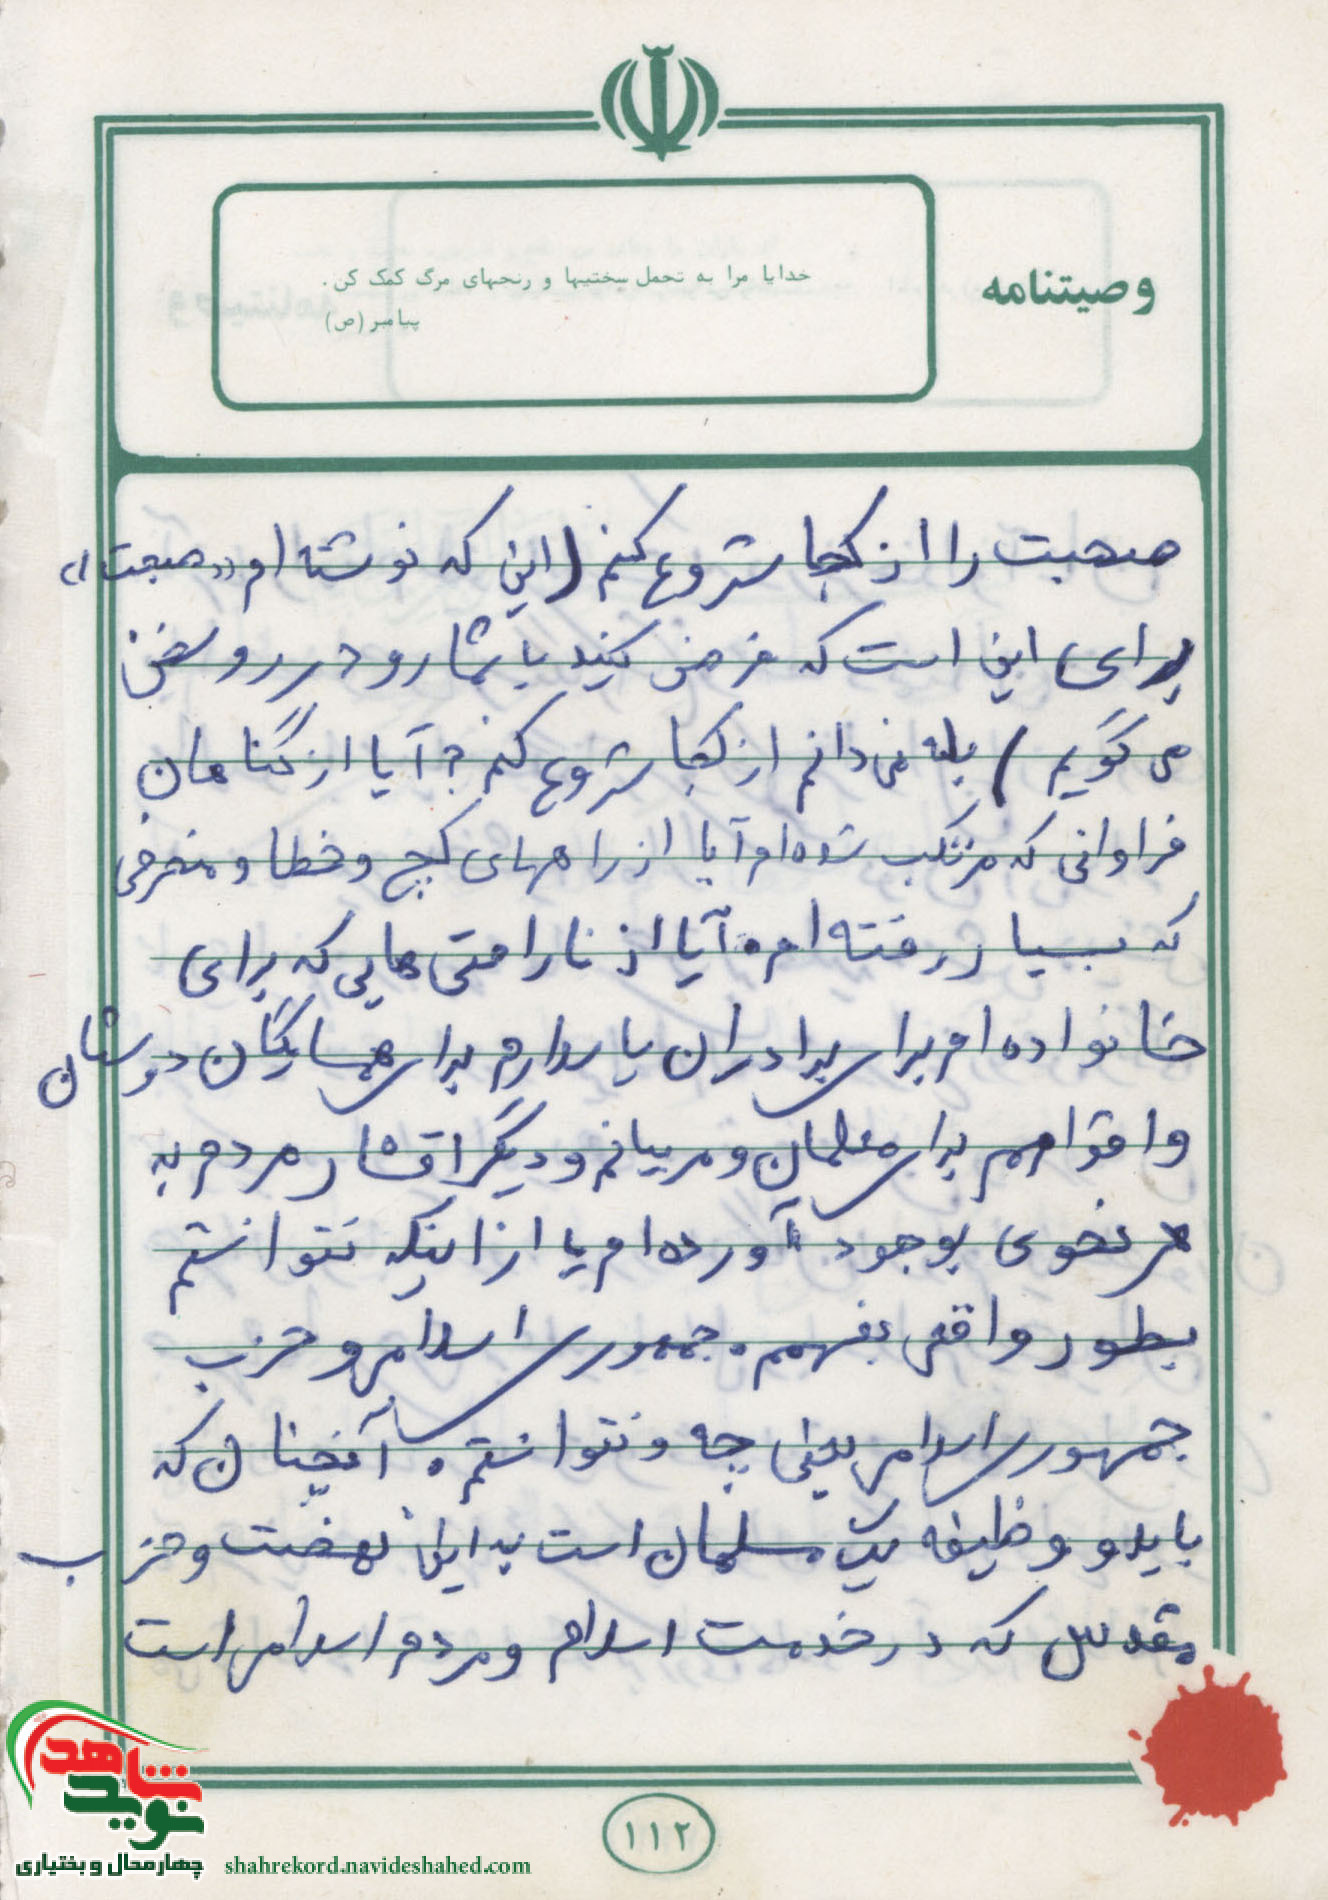 وصیتنامه
خدایا مرا به تحمل سختیها و رنجهای مرگ کمک کن.
پیامبر (ص)
صحبت را از کجا شروع کنم (این که نوشته ام «صحبت»
برای این است که فرض کنید با شما رو در رو سخن
می گویم) بله نمی دانم از کجا شروع کنم ؟ آیا از گناهان
فراوانی که مرتکب شده ام آیا از راههای کج و خطا و منحرفی
که بسیار رفته ام. آیا از ناراحتی هایی که برای
خانواده ام برای برادران پاسدارم برای همسایگان دوستان
و اقوامم برای معلمان و مربیانم و دیگر اقشار مردم به
هر نحوی بوجود آورده ام یا از اینکه نتوانستم
بطور واقعی بفهمم. جمهوری اسلامی و حزب
جمهوری اسلامی یعنی چه و نتوانستم. آنچنان که
باید و وظیفه یک مسلمان است به این نهضت و حزب
مقدس که در خدمت اسلام و مردم اسلامی است
۱۱۲
نوید شاهد
چهارمحال و بختیاری
shahrekord.navideshahed.com